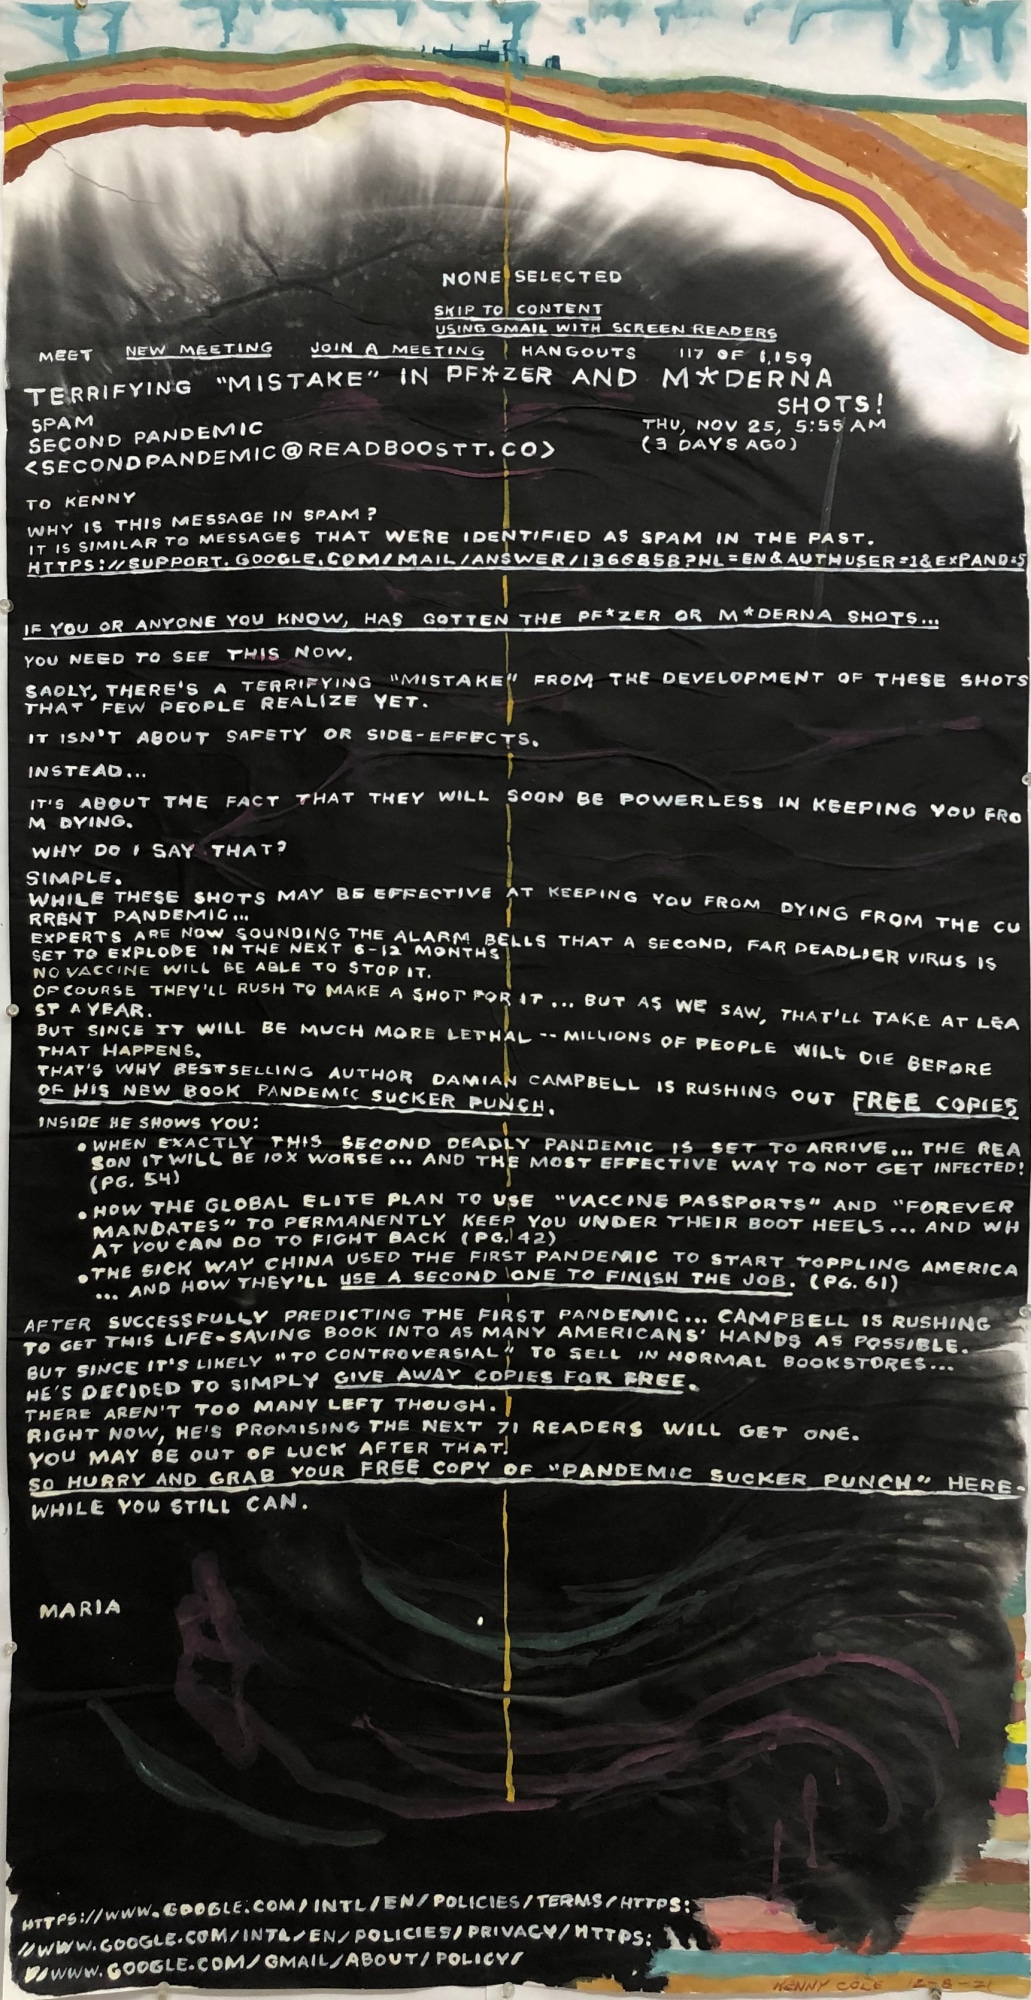 NONE SELECTED
SKIP TO CONTENT
USING GMAIL WITH SCREEN READERS
MEET NEW MEETING JOIN A MEETING HANGOUTS 117 OF 1,159
TERRIFYING "MISTAKE" IN PF*ZER AND M*DERNA
SHOTS!
SPAM
THU, NOV 25, 5:55 AM
SECOND PANDEMIC
(3 DAYS AGO)
<SECONDPANDEMIC@READBOOSTT.CO>
TO KENNY
WHY IS THIS MESSAGE IN SPAM?
IT IS SIMILAR TO MESSAGES THAT WERE IDENTIFIED AS SPAM IN THE PAST.
HTTPS://SUPPORT.GOOGLE.COM/MAIL/ANSWER/1366858?HL=EN&AUTHUSER=1&EXPAND=5
IF YOU OR ANYONE YOU KNOW, HAS GOTTEN THE PF*ZER OR M*DERNA SHOTS...
YOU NEED TO SEE THIS NOW.
SADLY, THERE'S A TERRIFYING "MISTAKE" FROM THE DEVELOPMENT OF THESE SHOTS
THAT FEW PEOPLE REALIZE YET.
IT ISN'T ABOUT SAFETY OR SIDE-EFFECTS.
INSTEAD...
IT'S ABOUT THE FACT THAT THEY WILL SOON BE POWERLESS IN KEEPING YOU FRO
M DYING.
WHY DO I SAY THAT?
SIMPLE.
WHILE THESE SHOTS MAY BE EFFECTIVE AT KEEPING YOU FROM DYING FROM THE CU
RRENT PANDEMIC...
EXPERTS ARE NOW SOUNDING THE ALARM BELLS THAT A SECOND, FAR DEADLIER VIRUS IS
SET TO EXPLODE IN THE NEXT 6-12 MONTHS
NO VACCINE WILL BE ABLE TO STOP IT.
OF COURSE THEY'LL RUSH TO MAKE A SHOT FOR IT... BUT AS WE SAW, THAT'LL TAKE AT LEA
ST A YEAR.
BUT SINCE IT WILL BE MUCH MORE LETHAL -- MILLIONS OF PEOPLE WILL DIE BEFORE
THAT HAPPENS.
THAT'S WHY BESTSELLING AUTHOR DAMIAN CAMPBELL IS RUSHING OUT FREE COPIES
OF HIS NEW BOOK PANDEMIC SUCKER PUNCH.
INSIDE HE SHOWS YOU:
• WHEN EXACTLY THIS SECOND DEADLY PANDEMIC IS SET TO ARRIVE... THE REA
SON IT WILL BE 10X WORSE... AND THE MOST EFFECTIVE WAY TO NOT GET INFECTED!
(PG. 54)
• HOW THE GLOBAL ELITE PLAN TO USE "VACCINE PASSPORTS" AND "FOREVER
MANDATES" TO PERMANENTLY KEEP YOU UNDER THEIR BOOT HEELS... AND WH
AT YOU CAN DO TO FIGHT BACK (PG. 42)
• THE SICK WAY CHINA USED THE FIRST PANDEMIC TO START TOPPLING AMERICA
... AND HOW THEY'LL USE A SECOND ONE TO FINISH THE JOB. (PG. 61)
AFTER SUCCESSFULLY PREDICTING THE FIRST PANDEMIC... CAMPBELL IS RUSHING
TO GET THIS LIFE-SAVING BOOK INTO AS MANY AMERICANS' HANDS AS POSSIBLE.
BUT SINCE IT'S LIKELY "TO CONTROVERSIAL" TO SELL IN NORMAL BOOKSTORES...
HE'S DECIDED TO SIMPLY GIVE AWAY COPIES FOR FREE.
THERE AREN'T TOO MANY LEFT THOUGH.
RIGHT NOW, HE'S PROMISING THE NEXT 71 READERS WILL GET ONE.
YOU MAY BE OUT OF LUCK AFTER THAT!
SO HURRY AND GRAB YOUR FREE COPY OF "PANDEMIC SUCKER PUNCH" HERE-
WHILE YOU STILL CAN.
MARIA
HTTPS://WWW.GOOGLE.COM/INTL/EN/POLICIES/TERMS/HTTPS:
//WWW.GOOGLE.COM/INTL/EN/POLICIES/PRIVACY/HTTPS:
//WWW.GOOGLE.COM/GMAIL/ABOUT/POLICY/
KENNY COLE 12-8-21